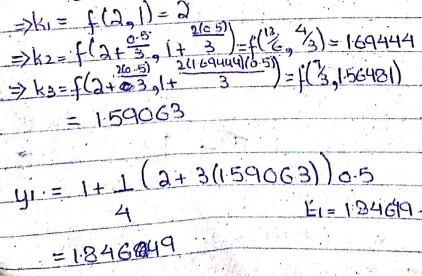 ⇒k1 = f(2,1) = 2
⇒k2 = f(2+0.5/3, 1+2(0.5)/3) = f(13/6, 4/3) = 1.69444
⇒k3 = f(2+2(0.5)/3, 1+2(1.69444)(0.5)/3) = f(7/3, 1.56481)
= 1.59063
y1 = 1+1/4 (2+3(1.59063)) 0.5
E1 = 1.84649
= 1.84649